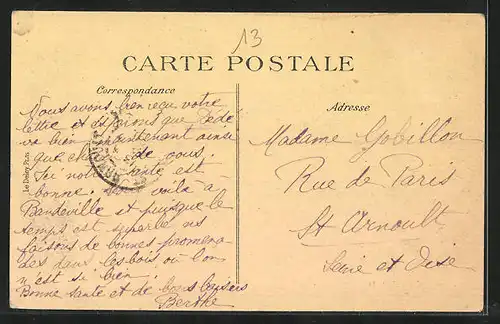 13
CARTE POSTALE
Correspondance
Nous avons bien reçu votre
lettre et disons que Dédé
va bien maintenant ainsi
que chez de vous.
Ici notre santé est
bonne. voilà à
Bandeville et puisque le
temps est superbe nous
faisons de bonnes promena-
des dans les bois où l'on
n'est si bien.
Bonne santé et de bons baisers
Berthe
Adresse
Madame Gobillon
Rue de Paris
St Arnoult
Seine et Oise